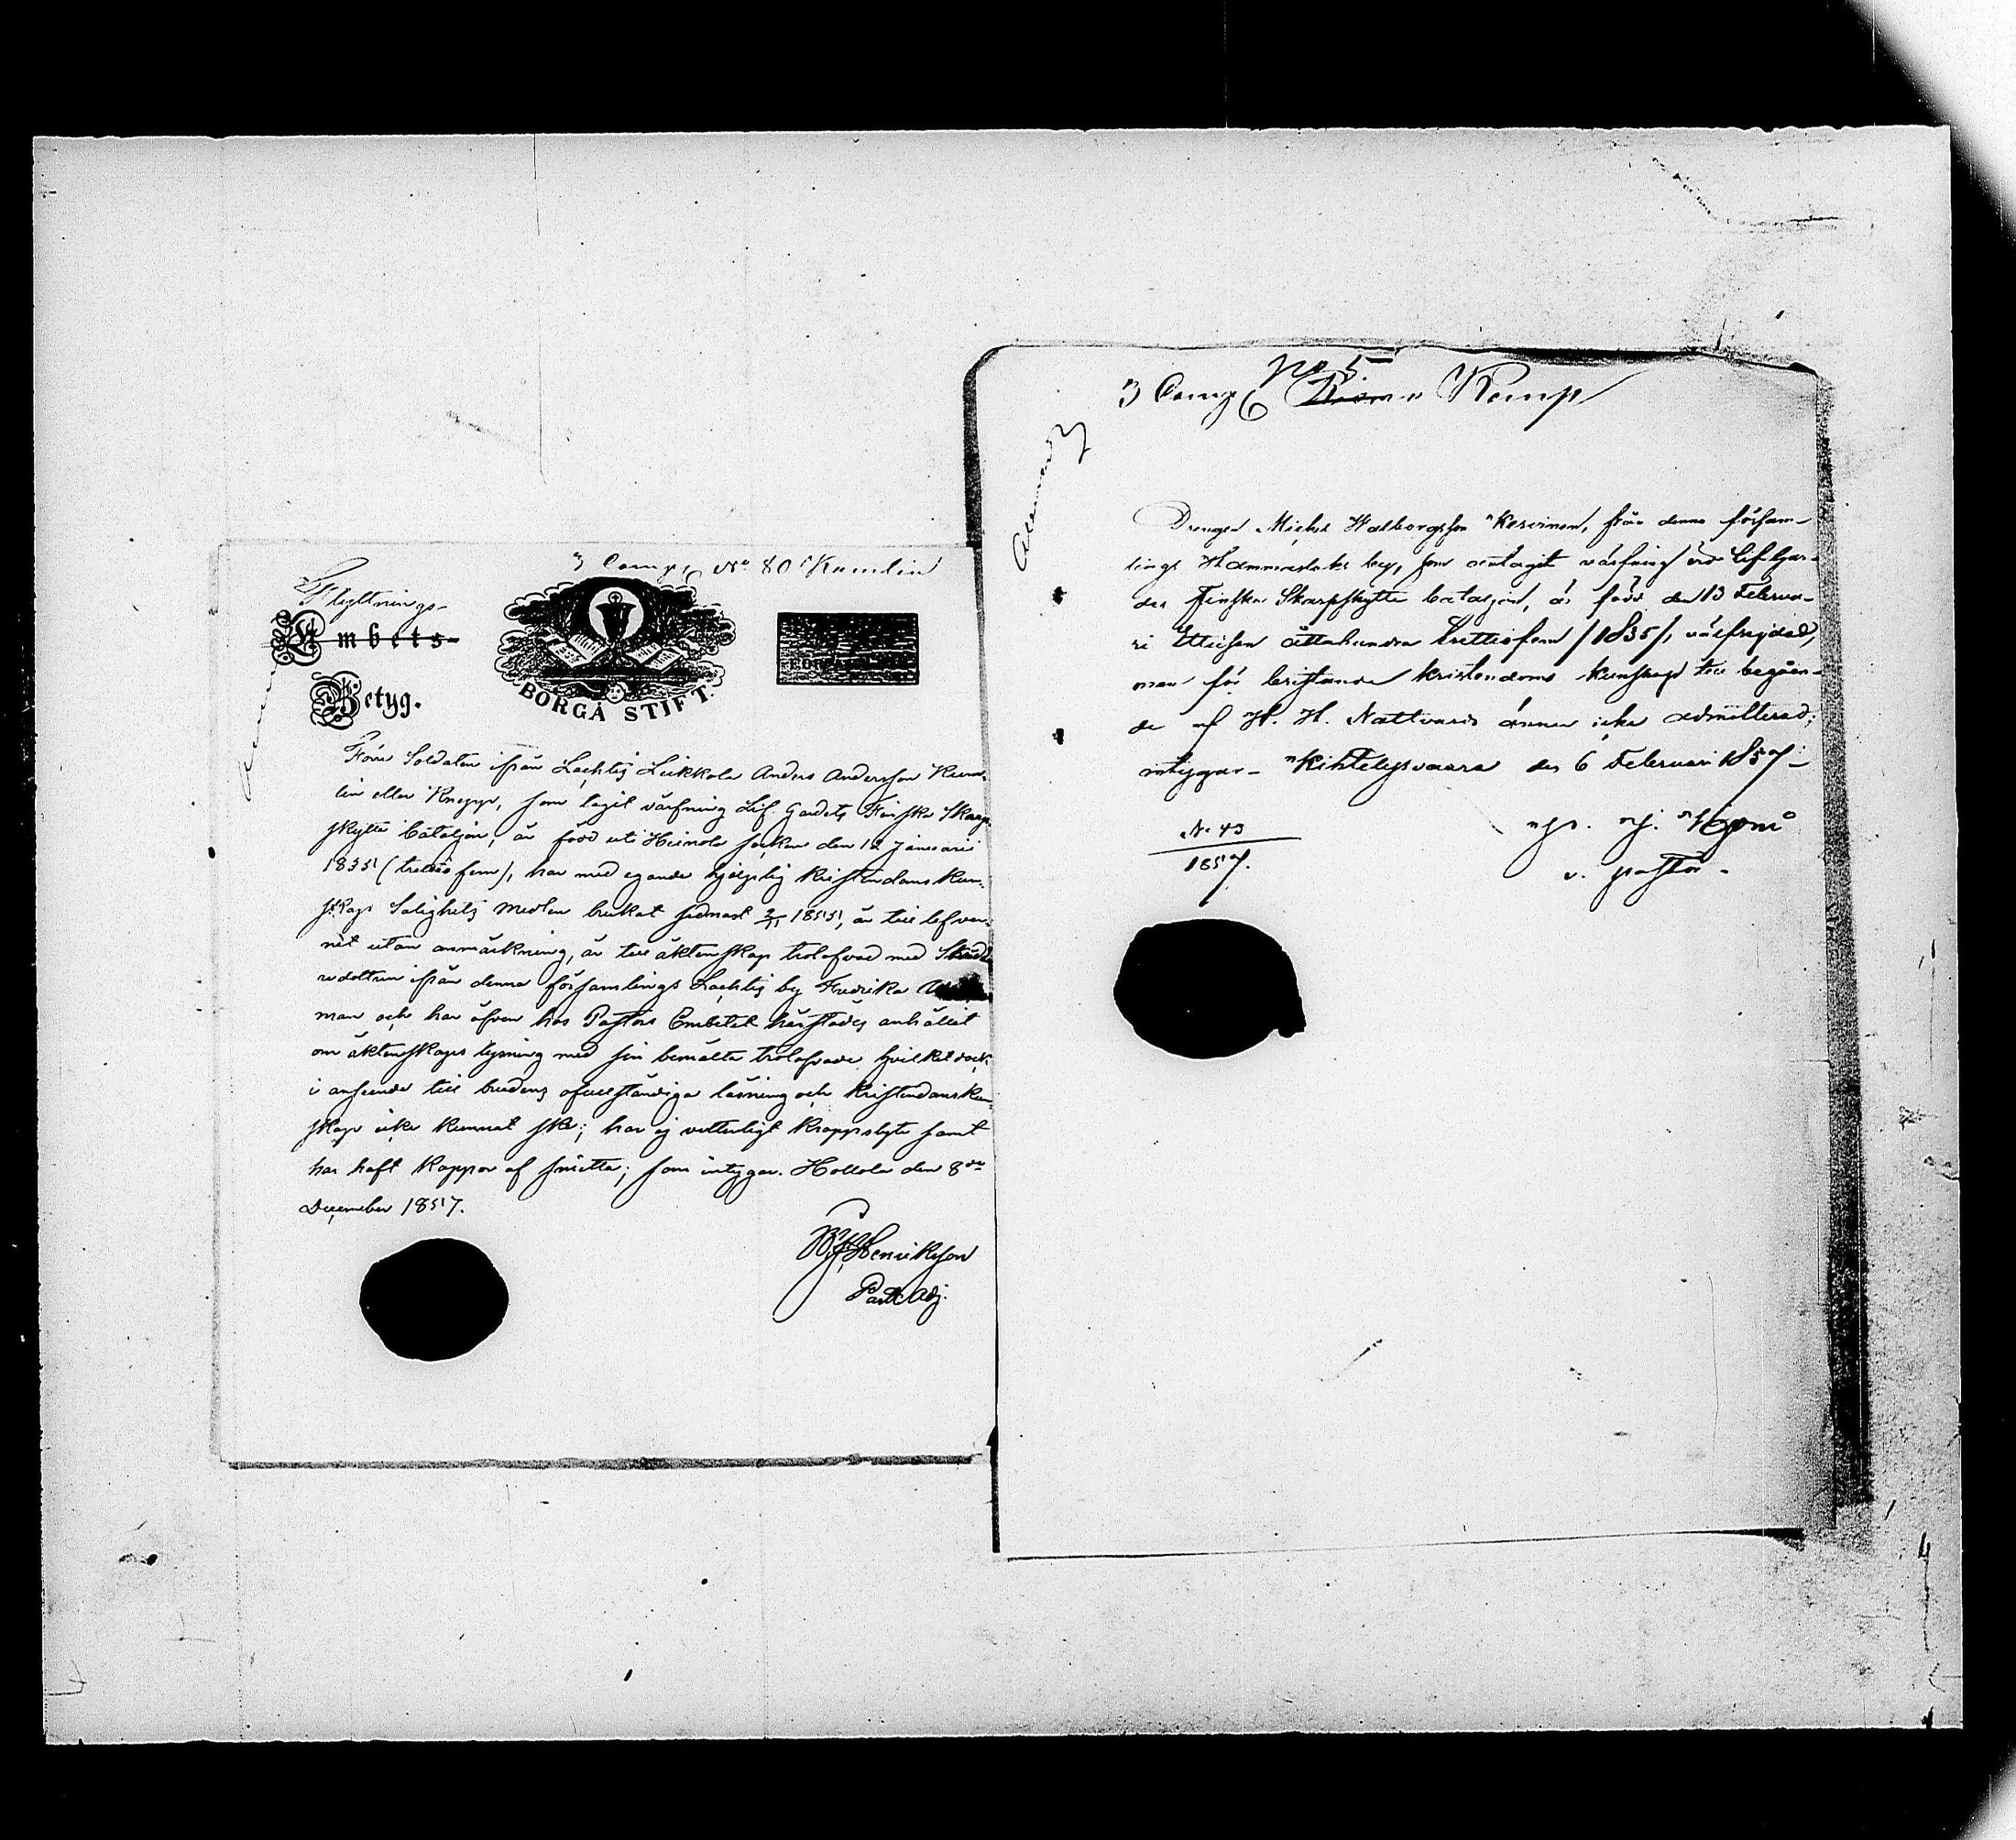 3 Comp. No 80 Kumlin
Flyttnings-
Embets-
Betyg.
BORGÅ STIFT
Förre Soldaten ifrån Lachtis Leikkola Anders Andersson Kum-
lin eller Knapp, som tagit värfning Lif Gardets Finska Skarp-
skytte bataljon, är född uti Heinola socken den 12 Januarii
1835 (trettiofem), har med egande hjelplig Kristendoms kun-
skap Salighets Medlen brukat sednast 2/11 1855, är till lefver-
net utan anmärkning, är till äktenskap trolofvad med
redottren ifrån denna församlings Lachtis by Fredrika
man och har äfven hos Pastors Embetet härstädes anhållit
om äktenskaps lysning med sin bemälta trolofvade hvilket dock
i anseende till brudens ofullständiga läsning och Kristendoms kun-
skap icke kunnat ske; har ej vetterligt kroppslyte samt
har haft koppor af smitta; som intygar. Hollola den 8de
December 1857.
Henrikson
Past. Adj.
No 5
3 Comp. Kemp
Drengen Michel Walborgsson Kervinen, från denna försam-
lings Hammaslaks by, som antagit värfning vid Lif-Gar-
des Finska Skarpskytte bataljon, är född den 13 Februa-
ri Ettusen åttahundra trettiofem /1835/, välfrejdad,
men för bristande kristendoms kunskap till begåen-
de af H. H. Nattvard ännu icke admitterad;
intygar Kihtelysvaara den 6 Februari 1857
No 43
1857.
v. pastor.